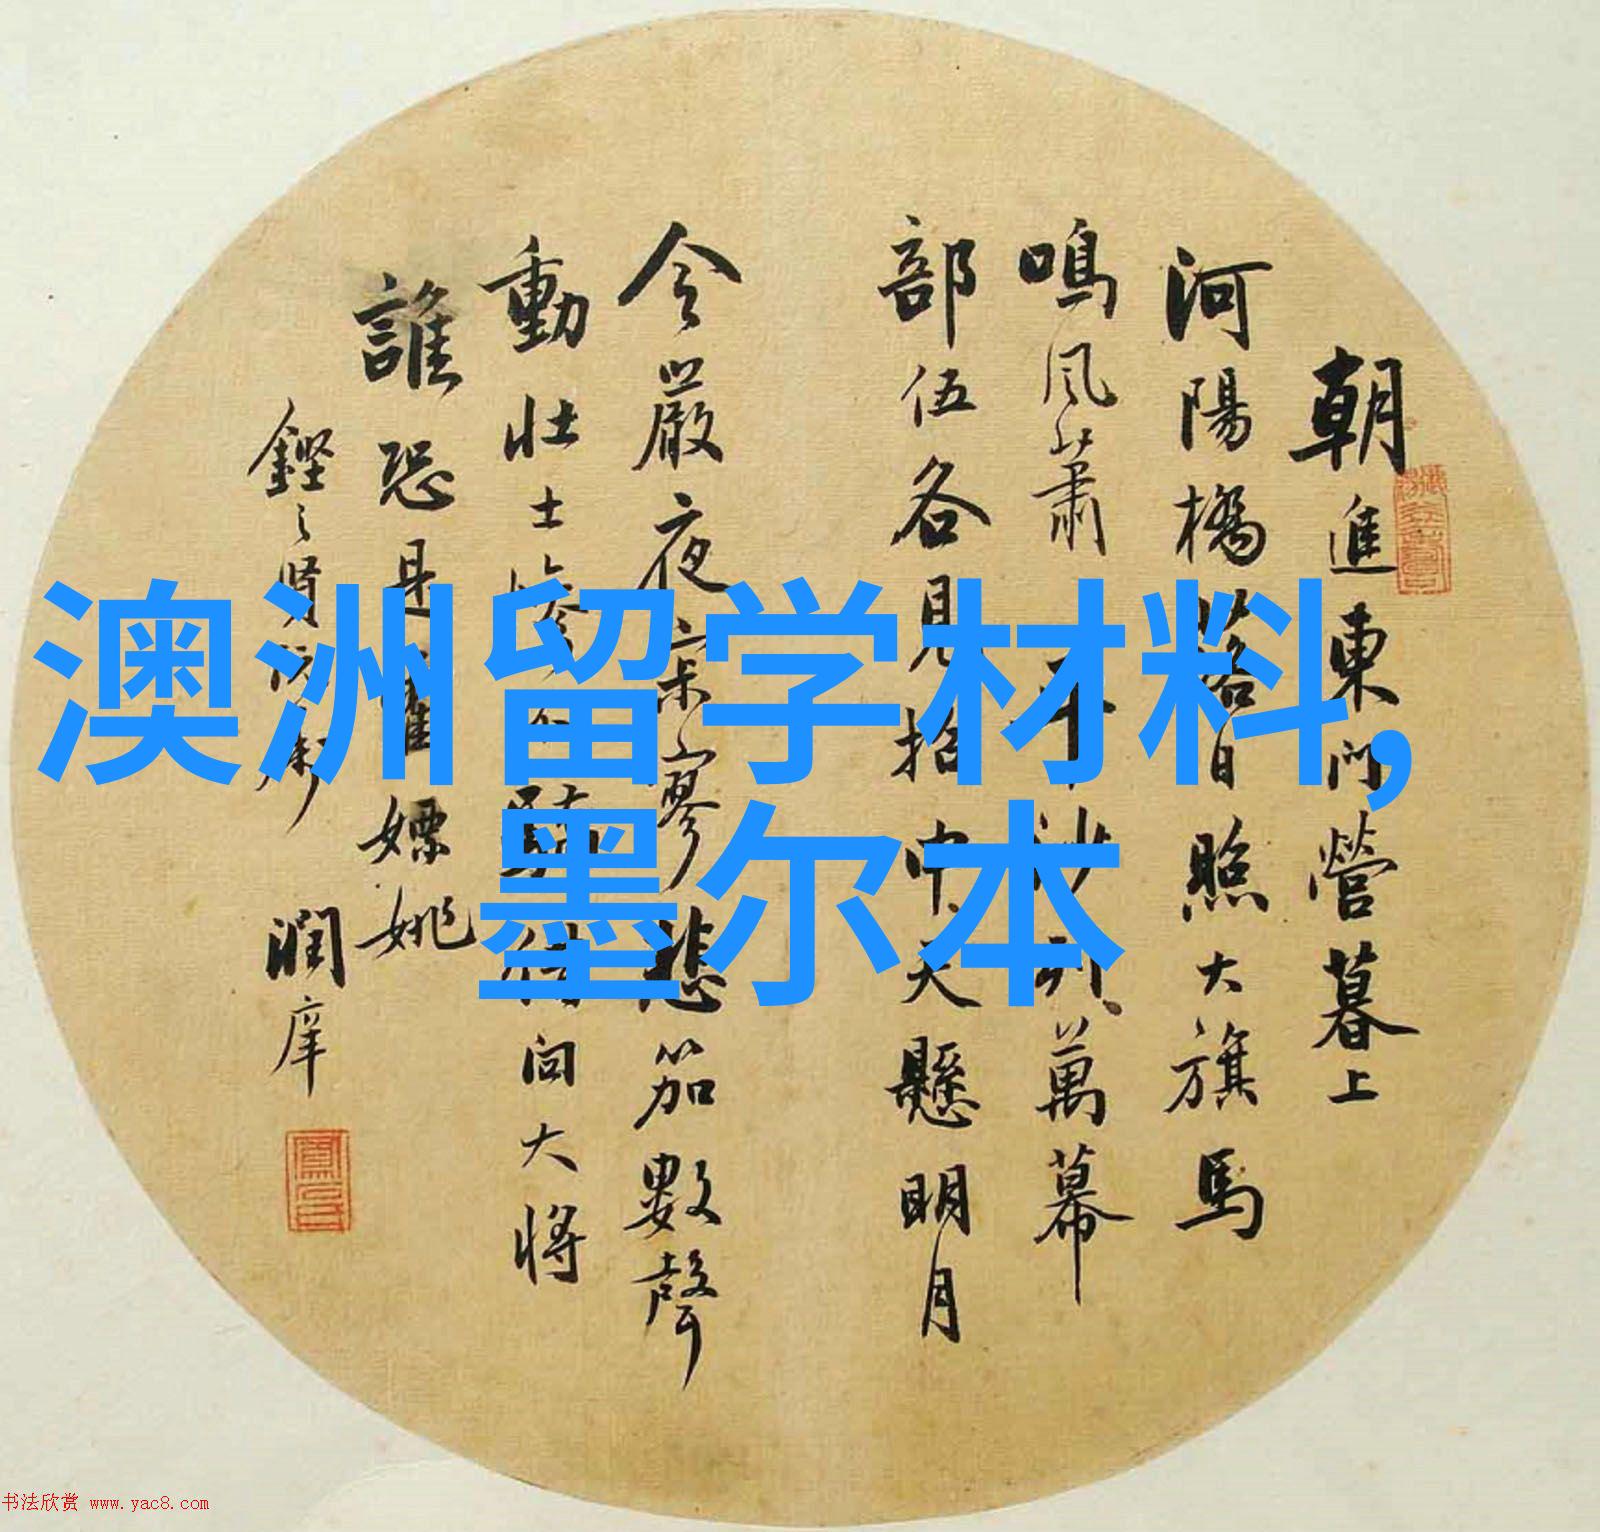 朝進東門營暮上
河陽橋落日照大旗馬
鳴風蕭平沙列萬幕
部伍各見招中天懸明月
令嚴夜寂寥悲笳數聲
動壯士慘不驕借問大將
誰恐是霍嫖姚
潤庠
澳洲留学材料,
墨尔本
书法欣赏 www.yac8.com